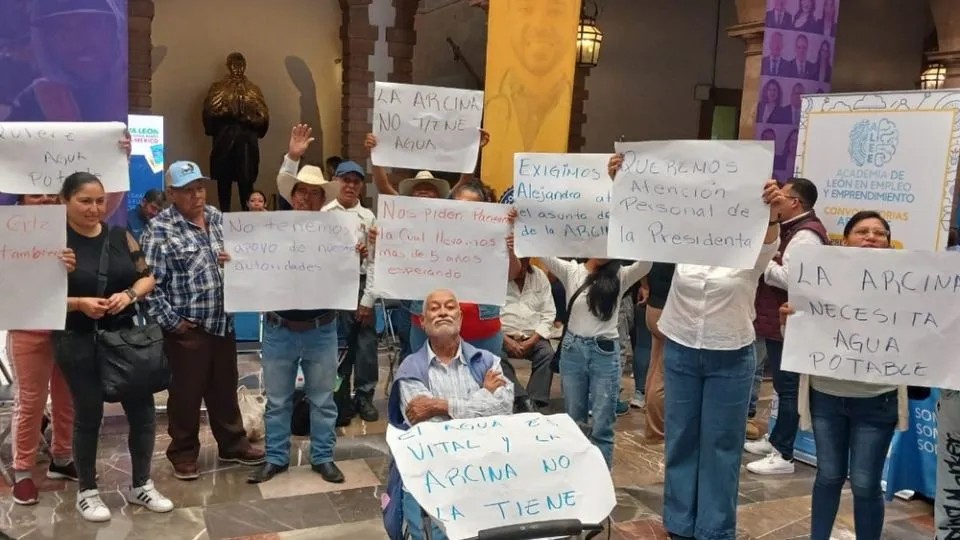 QUIERE
AGUA
LA ARCINA
NO TIENE
AGUA
No tenemos
apoyo de nuestras
autoridades
Nos piden Paneles
La Cual llevamos
mas de 5 años
esperando
EXIGIMOS
Alejandra at
el asunto de
de la ARCINA
QUEREMOS
Atención
Personal de
la Presidenta
LA ARCINA
NECESITA
AGUA
POTABLE
EL AGUA ES
VITAL Y LA
ARCINA NO
LA TIENE
LEÓN
MÉXICO
ALEE
ACADEMIA DE
LEÓN EN EMPLEO
Y EMPRENDIMIENTO
CONVOCATORIAS